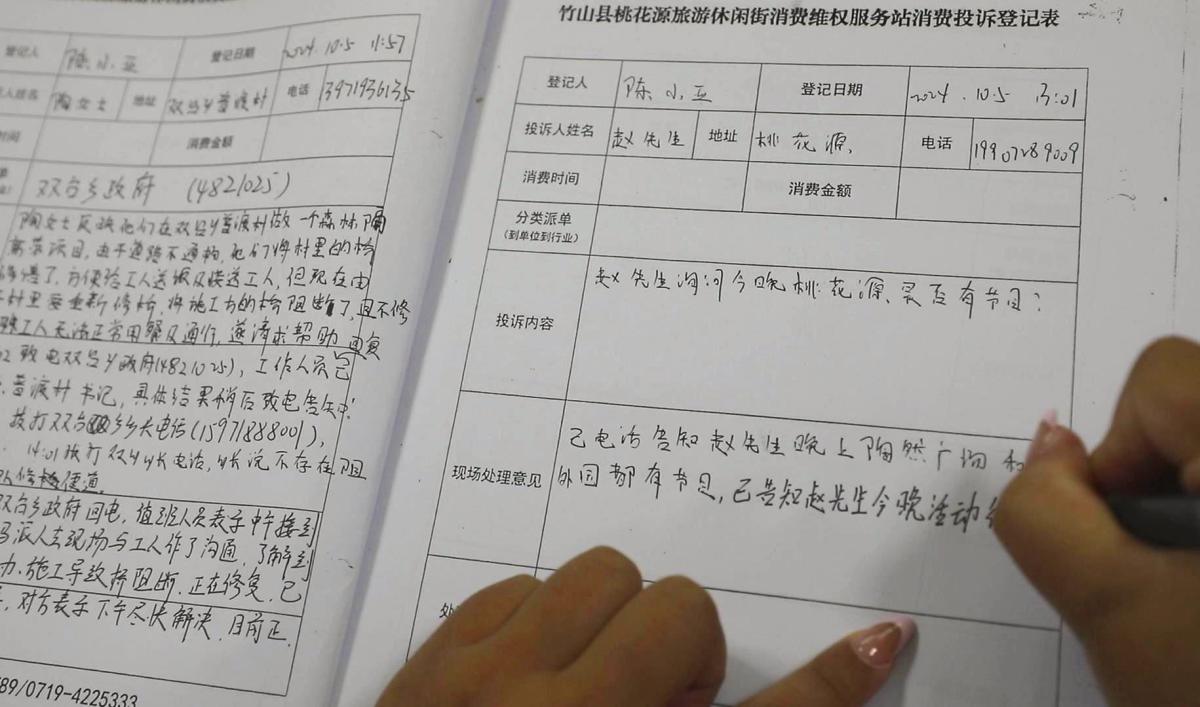 登记人 陈小亚 登记日期 2024.10.5 11:57
人姓名 陶女士 地址 双台乡普渡村 电话 13971936135
时间 消费金额
双台乡政府 (4821025)
陶女士反映他们在双台乡普渡村做一个森林
项目,由于道路不通畅,他们将村里的桥
修缮了,方便给工人送饭及接送工人,但现在由
村里要重新修桥,将施工方的桥阻断了,且不修
工人无法正常用餐及通行,遂请求帮助回复
致电双台乡政府(4821025),工作人员已
普渡村书记,具体结果稍后致电告知
拨打双台乡乡长电话(15971888001),
14:01拨打双乡长电话,乡长说不存在阻
修便道
双台乡政府回电,值班人员表示中午接到
派人去现场与工人作了沟通,了解到
施工导致桥阻断,正在修复,已
对方表示下午尽快解决,目前正
89/0719-4225333
竹山县桃花源旅游休闲街消费维权服务站消费投诉登记表
登记人 陈小亚 登记日期 2024.10.5 13:01
投诉人姓名 赵先生 地址 桃花源. 电话 19907289009
消费时间 消费金额
分类派单
(到单位到行业)
投诉内容 赵先生询问今晚桃花源是否有节目?
现场处理意见 已电话告知赵先生晚上陶然广场和
外围都有节目,已告知赵先生今晚活动
处